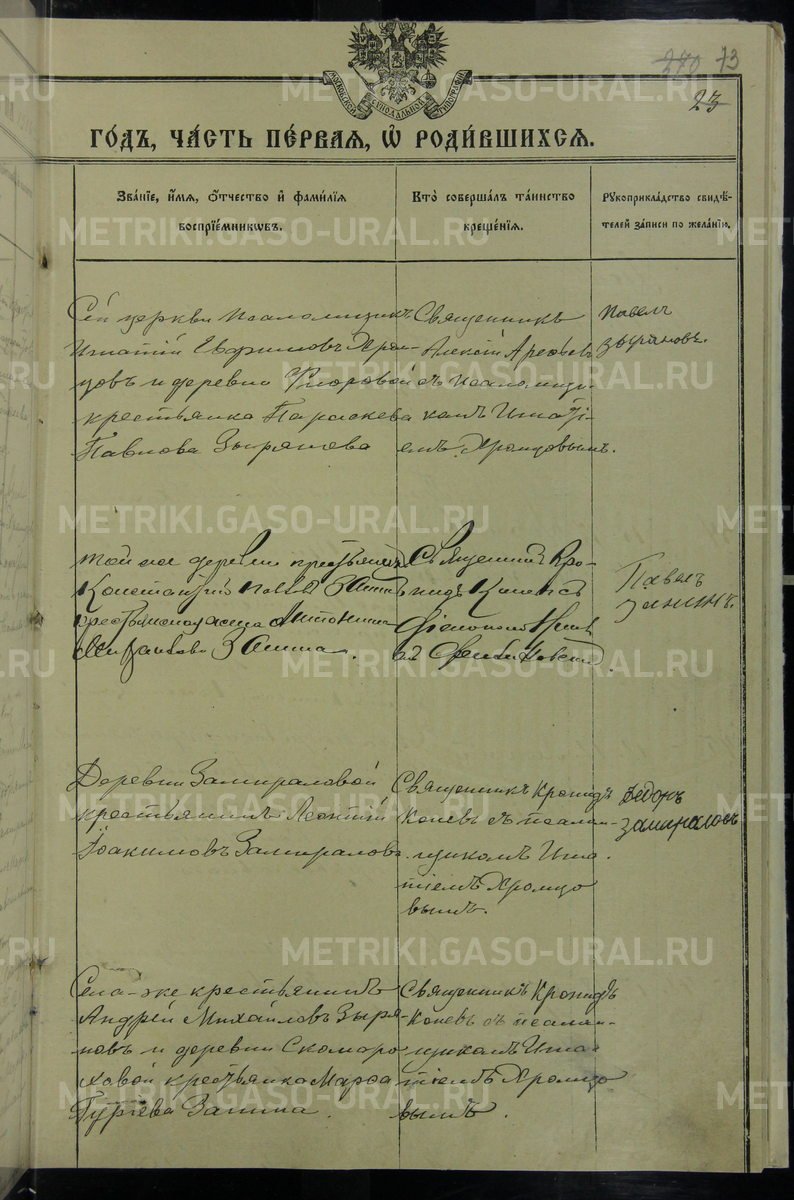 270 73
23
МОСКОВСКОЙ СѴНОДАЛЬНОЙ ТИПОГРАФІИ
METRIKI.GASO-URAL.RU
ГО́ДЪ, ЧА́СТЬ ПЕ́РВАЯ, Ѡ РОДИ́ВШИХСЯ.
Зва́нїе, и́мя, о́тчество и҆ фами́лїя
воспрїе́мникѡвъ.
Кто̀ соверша́лъ та́инство
креще́нїя.
Рꙋкоприкла́дство свидѣ́-
телей за́писи по жела́нїю.
Сей церкви псаломщикъ
Игнатій Евфимовъ Хром-
цовъ и деревни Флоровой
крестьянка Параскева
Павлова Зырянова
Священникъ
Алексій Арефьевъ
съ псаломщи-
комъ Игнаті-
емъ Хромцовымъ.
Павелъ
Зыряновъ.
той же деревни крестьянинъ
Константинъ Павловъ Занинъ
крестьянская Антонина
Занина.
Священникъ Кро-
нидъ Коневъ съ
Павелъ
Занинъ.
Деревни Замираловой
крестьянинъ Леонтій
Іоакимовъ Замираловъ.
Священникъ Кронидъ
Коневъ съ псалом-
щикомъ Игна-
тіемъ Хромцо
вымъ.
Федоръ
Замираловъ
Села-же крестьянинъ
Андрей Михайловъ Зыря-
новъ и деревни Скоморо
ховой крестьянка Марѳа
Гурьева Занина.
Священникъ Кронидъ
Коневъ съ псалом-
щикомъ Игна-
тіемъ Хромцо
вымъ.